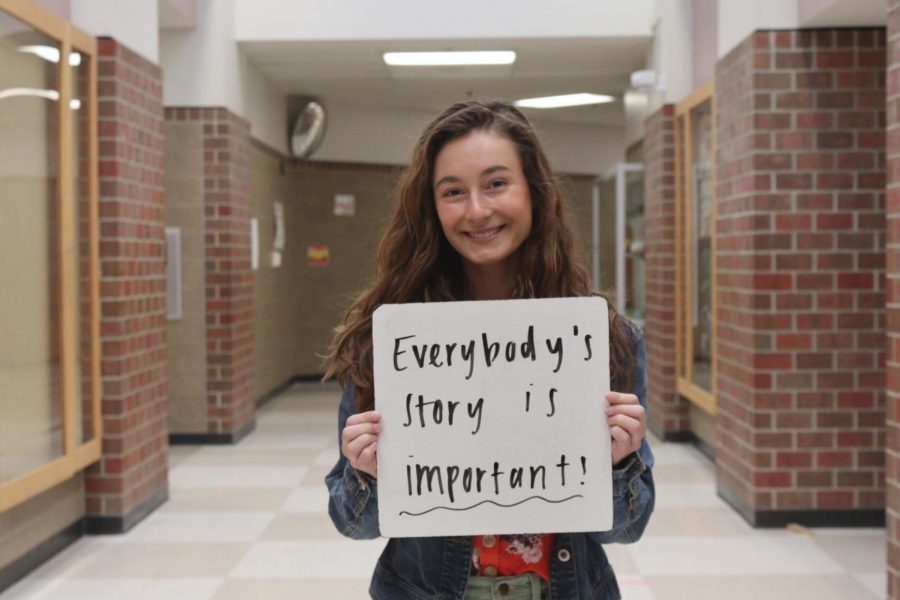 Everybody's
story is
important!